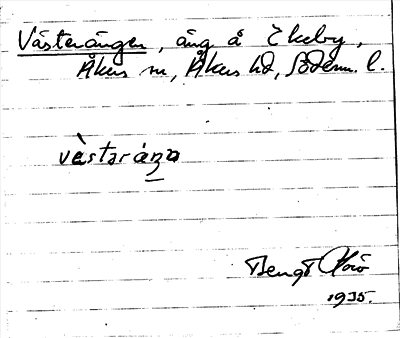 Västerängen, äng å Ekeby,
Åkers sn, Åkers hd, Söderm. l.
västəräŋa
Bengt
1935.